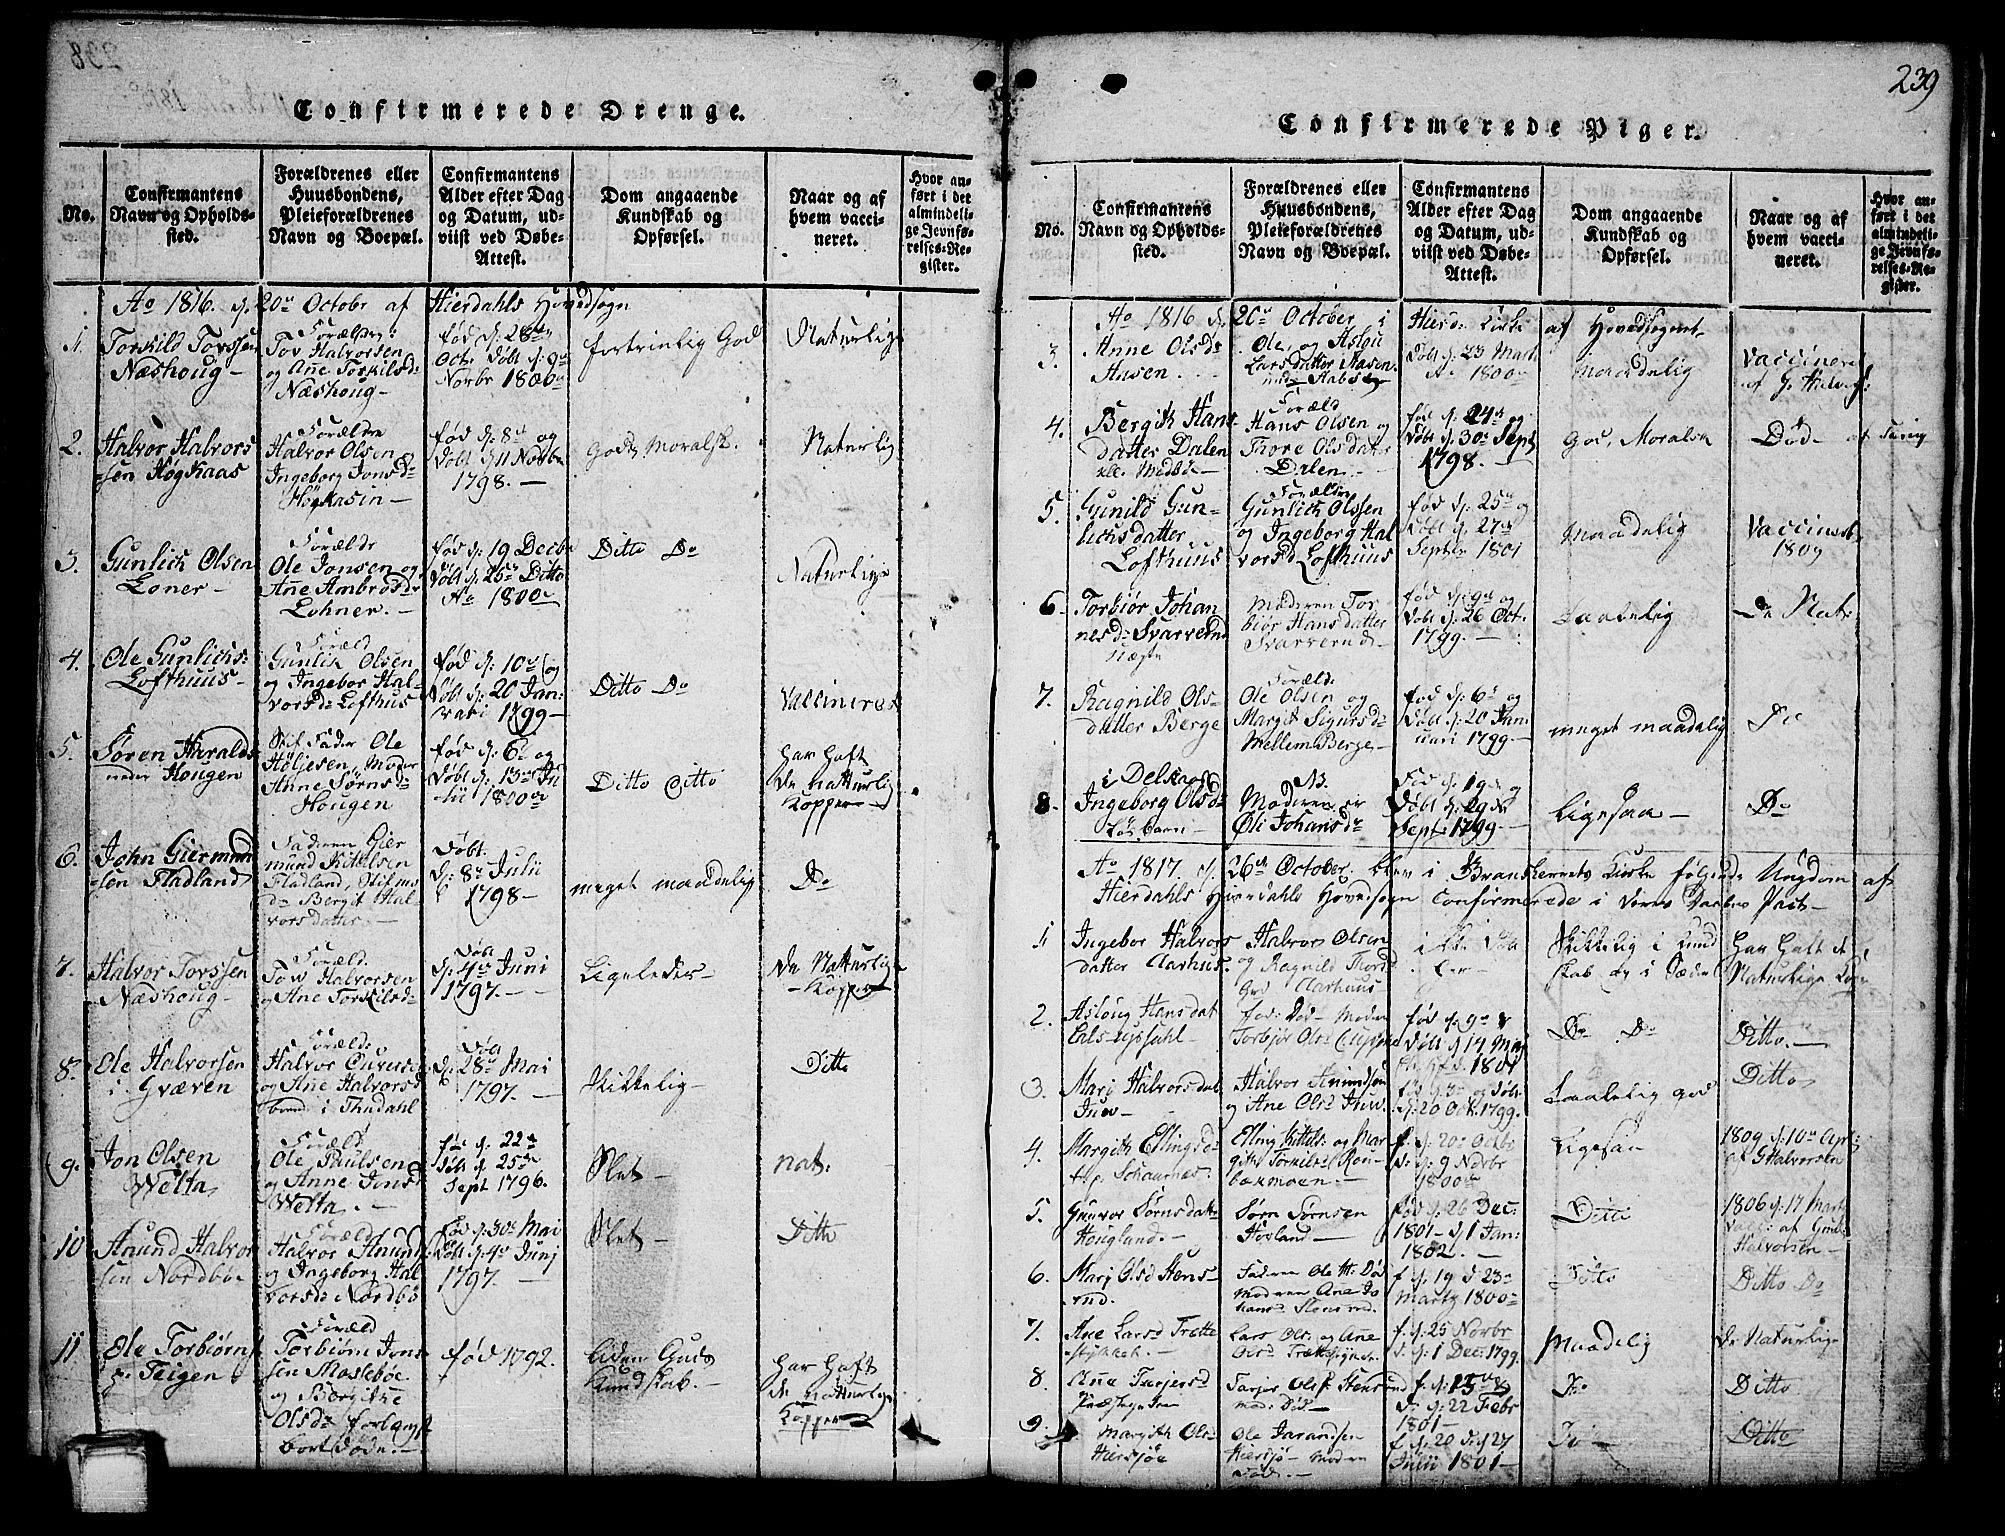 238
Confirmerede Drenge.
No.
Confirmantens
Navn og Opholds-
sted.
Forældrenes eller
Huusbondens,
Pleieforældrenes
Navn og Boepæl.
Confirmantens
Alder efter Dag
og Datum, ud-
viist ved Døbe-
Attest.
Dom angaaende
Kundskab og
Opførsel.
Naar og af
hvem vacci-
neret.
Hvor an-
ført i det
almindeli-
ge Jevnfø-
relses-Re-
gister.
Ao 1816. d. 20de Octobr af Hierdahls Hovedsogn
1. Torskild Torssen
Næshoug-
Forældre:
Tov Halvorsen
og Ane Torkilsd:
Næshoug-
fød d: 28de
Octr Døbt d: 9de
Norbr 1800
fortrinlig God
Naturlige
2. Halvor Halvors
-sen Høgkaas
Forældre
Halvor Olsen
Ingeborg Jonsd:
Høgkasin-
fød d: 8de og
Døbt d: 11 Novbr
1798.-
Godt Moralsk.
Naturlig
3. Gunlich Olsen
Loner-
Forældr
Ole Jonsen og
Ane Ambrosdr
Lohner.-
fød d: 19 Decbr
Døbt d: 25de Ditto
Ao 1800
Ditto Do
Naturlige
4. Ole Gunlichs:
Lofthuus-
Foræld
Gunlik Olsen
og Ingebor Hal-
vorsd: Lofthus
fød d: 10de og
Døbt d: 20 Jan:
vari 1799-
Ditto Do
Vaccineret
5. Søren Haralds
neder Hougen
Stif Fader Ole
Høljesen, Moder
Anne Sørnsd:
Hougen
fød d: 6te og
Døbt d: 13de Ju
lii 1800
Ditto Ditto
har haft
de naturlig
Kopper
6. John Giermund
-sen Fladland
Faderen Gier
mund Kittelsen
Fladland, Stifmo
dr Bergit Hal
vorsdatter.-
Døbt
d: 8de Julii
1798-
meget maadelig
Do
7. Halvor Torssen
Næshoug-
Foræld.
Tow Halvorsen
og Ane Torskilsd:
Døbt
d: 4de Juni
1797.-
Ligeledes-
De Naturlig
-Kopper
8. Ole Halvorsen
i Græven
Foræld:
Halvor
og Ane Halvorsd
i Thudahl
Døbt
d: 28de Mai
1797.-
Skikkelig-
Ditto
9. Jon Olsen
Welta
Foræld:
Ole Paulsen
og Anne Jonsd
Welta.-
fød d: 22de
Døbt d: 25de
Sept 1796.
Slet-
nat:
10 Anund Halvor
sen Nordbøe
Foræld
Halvor Anund
og Ingeborg Hal
vorsd: Nordbø
fød d: 30te Mai
Døbt d: 4de Junj
1797.-
Slet-
Ditto
11 Ole Torbiørns
p: Teigen
Foræld
Torbiørn Jons
sen Moslebøe
og Bergithe
Olsd: forlangst
bort døde.-
fød 1792.
liden Guds
Kundskab.
har haft
de naturlige
Kopper
239
Confirmerede Piger.
No.
Confirmantens
Navn og Opholds-
sted.
Forældrenes eller
Huusbondens,
Pleieforældrenes
Navn og Boepæl.
Confirmantens
Alder efter Dag
og Datum, ud-
viist ved Døbe-
Attest.
Dom angaaende
Kundskab og
Opførsel.
Naar og af
hvem vacci-
neret.
Hvor an-
ført i det
almindeli-
ge Jevnfø-
relses-Re-
gister.
Ao 1816 d. 20de October i Hierd: Kirke af Hovedsognet-
3. Anne Olsdr
Aasen
Ole, og Aslou
Larsdatter Aasen
Døbt d: 23 Mart
Ao 1800
Maadelig
Vaccineret
4. Bergith Hans
datter Dalen
Foræld
Hans Olsen og
Thore Olsdatter
Dalen.-
fød d: 24de og
Døbt d: 30te Sept
1798.-
God, Moralsk
Do
5. Gunild Gun-
lichsdatter
Lofthuus
Forældre
Gunlich Olssen
og Ingeborg Hal
vorsd: Lofthuus
fød d: 25de og
Døbt d: 27de
Septbr 1801
Maadelig
Vaccineret
1809
6. Torbiør Johan
nesd: Svarverud
uægte
Moderen Tor
biør Hansdatter
Svarverud-
fød d: 9de og
Døbt d: 26 Oct:
1799.-
Taalelig
De Nat:
7. Ragnild Ols
datter Berge
Foræld:
Ole Olsen og
Margit Sigursd:
Mellem Berge-
fød d: 6te og
Døbt d: 20 Jan
uari 1799-
meget maadelig
Do
8. Ingeborg Olsd:
NB.
Moderen er
Øli Johansdr
Fød d: 19de og
Døbt d: 29de
Sept: 1799.-
Ligesaa-
Do
Ao 1817. d. 26de October. blev i Branskernets Kirke følgende Ungdom af
Hierdahls Hovedsogn Confirmerede i Deres Daabes Pact-
1 Ingebor Halvors
datter Aarhus.
Halvor Olsen
og Ragnild Thord
Aarhuus
Skikkelig i Kund
skab og i Sæder
har haft de
Naturlige Kop:
2. Aslong Hansdat
Moder
Torbjør Olsd
fød d: 9de &
Døbt d 14 Maj
1801
Do Do
Ditto.-
3. Mari Halvorsdat
Juve-
Halvor Anundsen
og Ane Olsd Juve.
fød d: 3de og Døbt
d: 20 Oct. 1799.
Taalelig god
Ditto
4. Margith Ellingsd:
Elling Kittels: og Mar
gith Torkilsd Rou-
baxmoen.-
f. d: 20de Octbr
D: d: 9 Novbr
1800
Ligesaa
1809 d: 10de Apr:
af G Halvorsen
5. Gunvor Sørnsdatt:
Hougland.-
Sørn Sørnsen
Hovland.-
fød d: 26 Dec:
1801- d 1 Jan:
1802.-
Ditto
1806 d: 17 Mart
Vacc: af
Halvorsen-
6. Mari Olsd Stens-
rud.
Faderen Ole H: Død
Moderen Ane Jo
hansd: Stensrud.
f. d: 19 d: 23de
Martz 1800
Ditto
Ditto Do
7. Ane Larsd Trette
stykket.-
Lars Ols: og Ane
Olsd
f. d: 25 Norbr
d: d: 1 Dec: 1799.
Maadelig
De Naturlige
8. Ane Tarjersd
Tarjer Olsf: Stensrud
mod: Død.-
f. d: 15de
D: d: 22 Febr
1801-
Do
Ditto
9. Margith Olsd:
Hiersjøe
Ole Jaransen
Hiersjø- Moderen
Død.-
f d: 20 d: 27
Julii 1801-
Do-
Ditto